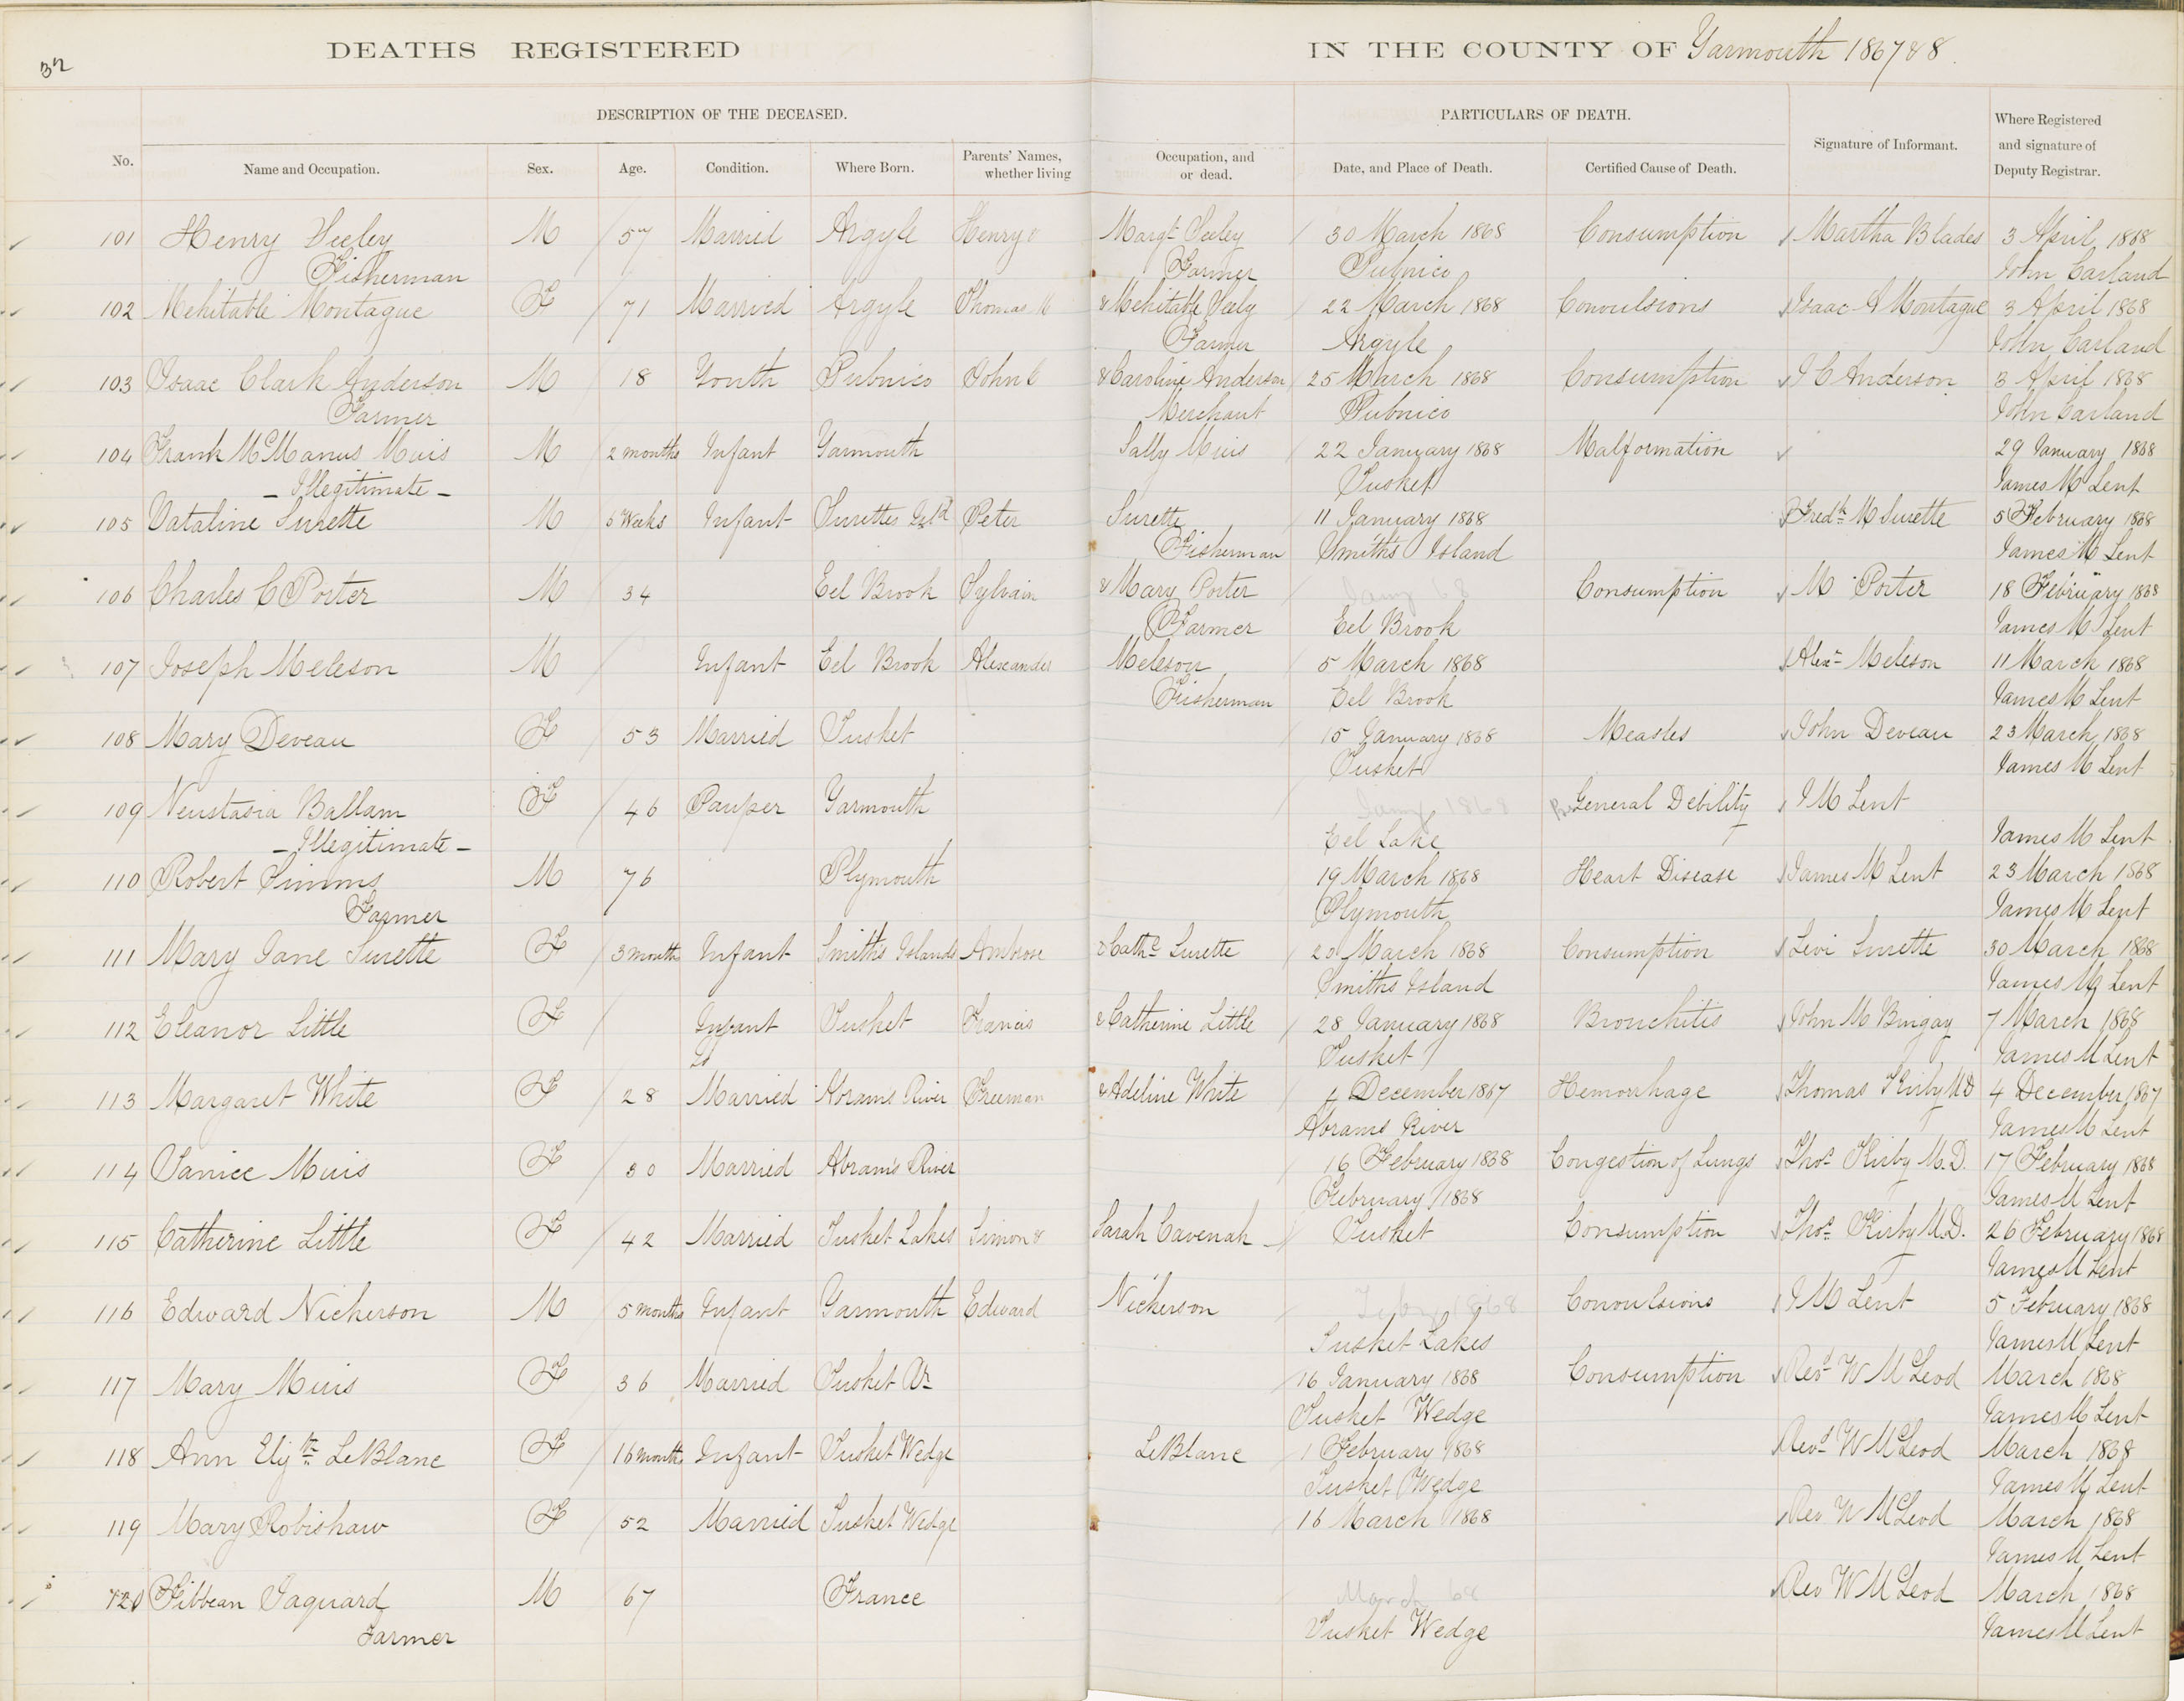 32
DEATHS REGISTERED IN THE COUNTY OF Yarmouth 1867 & 8.
DESCRIPTION OF THE DECEASED. PARTICULARS OF DEATH.
No. Name and Occupation. Sex. Age. Condition. Where Born. Parents' Names, whether living Occupation, and or dead. Date, and Place of Death. Certified Cause of Death. Signature of Informant. Where Registered and signature of Deputy Registrar.
101 Henry Seeley M 57 Married Argyle Henry & Margt Seeley 30 March 1868 Consumption Martha Blades 3 April, 1868
Fisherman Farmer Pubnico John Carland
102 Mehitable Montague F 71 Married Argyle Thomas M & Mehitable Seely 22 March 1868 Convulsions Isaac S Montague 3 April 1868
Farmer Argyle John Carland
103 Isaac Clark Anderson M 18 Youth Pubnico John C & Caroline Anderson 25 March 1868 Consumption I C Anderson 3 April 1868
Farmer Merchant Pubnico John Carland
104 Frank McManus Muis M 2 months Infant Yarmouth Sally Muis 22 January 1868 Malformation 29 January 1868
- Illegitimate - Tusket James M Lent
105 Vataline Surette M 6 Weeks Infant Surettes Isld Peter Surette 11 January 1868 Fredk M Surette 5 February 1868
Fisherman Smiths Island James M Lent
106 Charles C Porter M 34 Eel Brook Sylvain & Mary Porter Jany 68 Consumption M Porter 18 February 1868
Farmer Eel Brook James M Lent
107 Joseph Meleson M Infant Eel Brook Alexander Meleson 5 March 1868 Alexr Meleson 11 March 1868
Fisherman Eel Brook James M Lent
108 Mary Deveau F 53 Married Tusket 15 January 1868 Measles John Deveau 23 March 1868
Tusket James M Lent
109 Neustasia Ballam F 46 Pauper Yarmouth Jany 1868 General Debility J M Lent
- Illegitimate - Eel Lake James M Lent
110 Robert Simms M 76 Plymouth 19 March 1868 Heart Disease James M Lent 23 March 1868
Farmer Plymouth James M Lent
111 Mary Jane Surette F 3 month Infant Smiths Islands Ambrose & Cathe Surette 20 March 1868 Consumption Levi Surette 30 March 1868
Smiths Island James M Lent
112 Eleanor Little F Infant Tusket Francis & Catherine Little 28 January 1868 Bronchitis John M Bingay 7 March 1868
Tusket James M Lent
113 Margaret White F 28 Married Abrams River Freeman & Adeline White 4 December 1867 Hemorrhage Thomas Kirby MD 4 December 1867
Abrams River James M Lent
114 Janice Muis F 30 Married Abrams River 16 February 1868 Congestion of Lungs Thos Kirby M.D. 17 February 1868
February 1868 James M Lent
115 Catherine Little F 42 Married Tusket Lakes Simon & Sarah Cavenah Tusket Consumption Thos Kirby M.D. 26 February 1868
James M Lent
116 Edward Nickerson M 5 months Infant Yarmouth Edward Nickerson 1868 Convulsions J M Lent 5 February 1868
Tusket Lakes James M Lent
117 Mary Muis F 36 Married Tusket Rr 16 January 1868 Consumption Revd W McLeod March 1868
Tusket Wedge James M Lent
118 Ann Elizth LeBlanc F 16 month Infant Tusket Wedge LeBlanc 1 February 1868 Revd W McLeod March 1868
Tusket Wedge James M Lent
119 Mary Robishaw F 52 Married Tusket Wedge 16 March 1868 Rev W McLeod March 1868
James M Lent
120 Fibbean Jaquard M 67 France March 68 Rev W McLeod March 1868
Farmer Tusket Wedge James M Lent